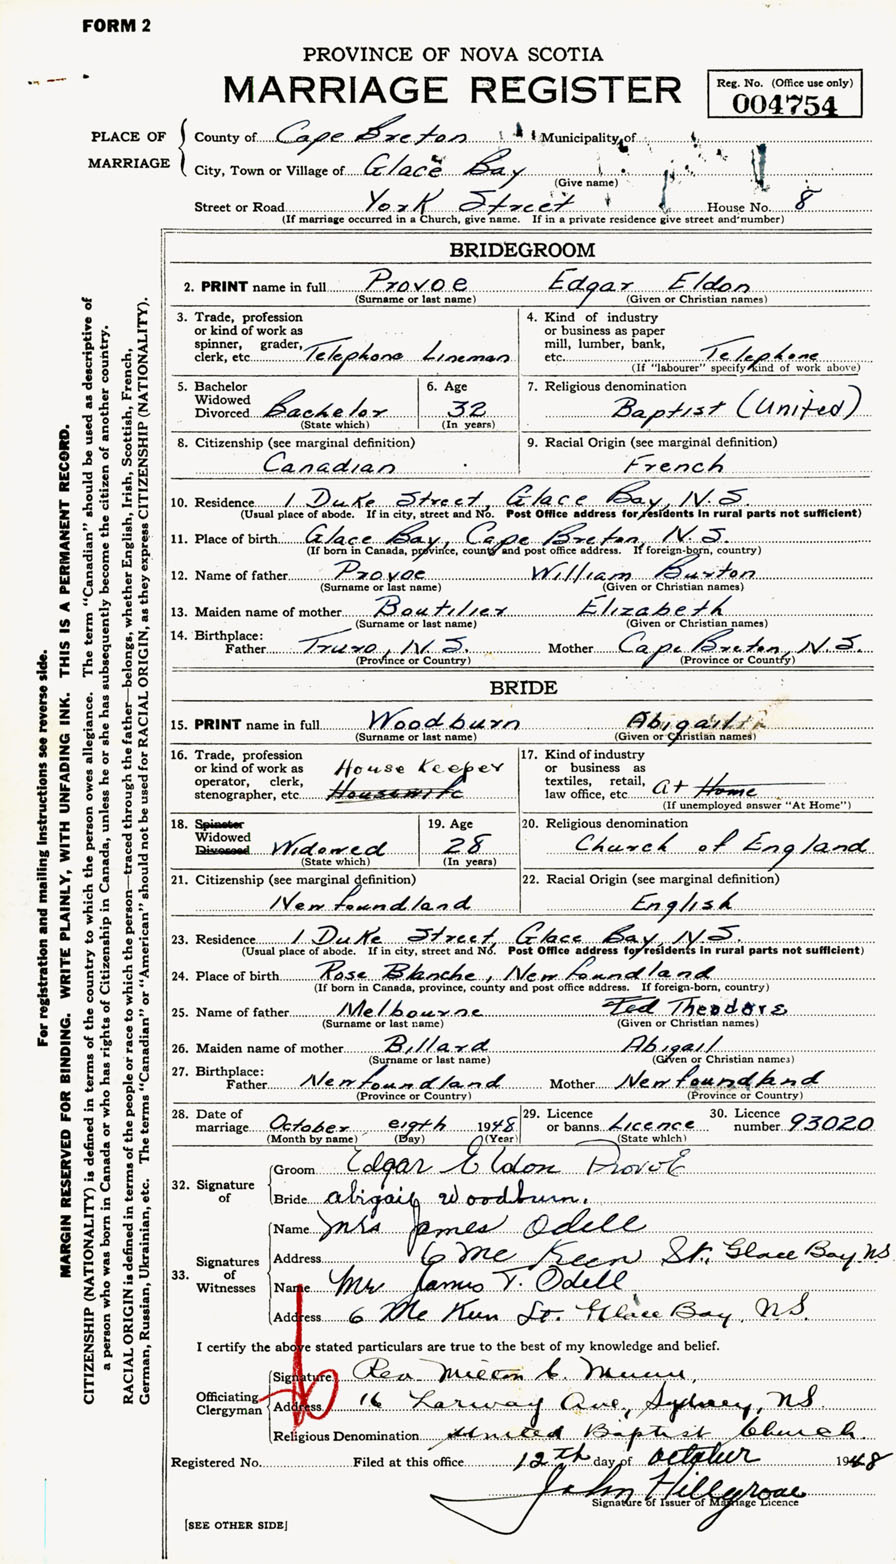 FORM 2
PROVINCE OF NOVA SCOTIA
MARRIAGE REGISTER
Reg. No. (Office use only)
004754
PLACE OF MARRIAGE
County of Cape Breton Municipality of
City, Town or Village of Glace Bay
(Give name)
Street or Road York Street House No. 8
(If marriage occurred in a Church, give name. If in a private residence give street and number)
BRIDEGROOM
2. PRINT name in full Provoe Edgar Eldon
(Surname or last name) (Given or Christian names)
3. Trade, profession or kind of work as spinner, grader, clerk, etc. Telephone Lineman
4. Kind of industry or business as paper mill, lumber, bank, etc. Telephone
(If "labourer" specify kind of work above)
5. Bachelor Widowed Divorced Bachelor
(State which)
6. Age 32
(In years)
7. Religious denomination Baptist (United)
8. Citizenship (see marginal definition) Canadian
9. Racial Origin (see marginal definition) French
10. Residence 1 Duke Street, Glace Bay, N.S.
(Usual place of abode. If in city, street and No. Post Office address for residents in rural parts not sufficient)
11. Place of birth Glace Bay, Cape Breton, N.S.
(If born in Canada, province, county and post office address. If foreign-born, country)
12. Name of father Provoe William Burton
(Surname or last name) (Given or Christian names)
13. Maiden name of mother Boutilier Elizabeth
(Surname or last name) (Given or Christian names)
14. Birthplace: Father Truro, N.S. Mother Cape Breton, N.S.
(Province or Country) (Province or Country)
BRIDE
15. PRINT name in full Woodburn Abigail
(Surname or last name) (Given or Christian names)
16. Trade, profession or kind of work as operator, clerk, stenographer, etc. House Keeper Housewife
17. Kind of industry or business as textiles, retail, law office, etc. at Home
(If unemployed answer "At Home")
18. Spinster Widowed Divorced Widowed
(State which)
19. Age 28
(In years)
20. Religious denomination Church of England
21. Citizenship (see marginal definition) Newfoundland
22. Racial Origin (see marginal definition) English
23. Residence 1 Duke Street, Glace Bay N.S.
(Usual place of abode. If in city, street and No. Post Office address for residents in rural parts not sufficient)
24. Place of birth Rose Blanche, Newfoundland
(If born in Canada, province, county and post office address. If foreign-born, country)
25. Name of father Melbourne Ted Theodore
(Surname or last name) (Given or Christian names)
26. Maiden name of mother Billard Abigail
(Surname or last name) (Given or Christian names)
27. Birthplace: Father Newfoundland Mother Newfoundland
(Province or Country) (Province or Country)
28. Date of marriage October eigth 1948
(Month by name) (Day) (Year)
29. Licence or banns Licence
(State which)
30. Licence number 93020
32. Signature of
Groom Edgar Eldon Provoe
Bride abigail woodburn.
33. Signatures of Witnesses
Name Mrs James Odell
Address 6 Mc Keen St., Glace Bay, NS
Name Mr James T. Odell
Address 6 Mc Keen St. Glace Bay, NS.
I certify the above stated particulars are true to the best of my knowledge and belief.
Officiating Clergyman
Signature Rev Milton C.
Address 16 Ave, Sydney, NS.
Religious Denomination United Baptist Church.
Registered No. Filed at this office 12th day of October 1948
John Hillgrove
Signature of Issuer of Marriage Licence
[SEE OTHER SIDE]
For registration and mailing instructions see reverse side.
MARGIN RESERVED FOR BINDING. WRITE PLAINLY, WITH UNFADING INK. THIS IS A PERMANENT RECORD.
CITIZENSHIP (NATIONALITY) is defined in terms of the country to which the person owes allegiance. The term "Canadian" should be used as descriptive of
a person who was born in Canada or who has rights of Citizenship in Canada, unless he or she has subsequently become the citizen of another country.
RACIAL ORIGIN is defined in terms of the people or race to which the person—traced through the father—belongs, whether English, Irish, Scottish, French,
German, Russian, Ukrainian, etc. The terms "Canadian" or "American" should not be used for RACIAL ORIGIN, as they express CITIZENSHIP (NATIONALITY).